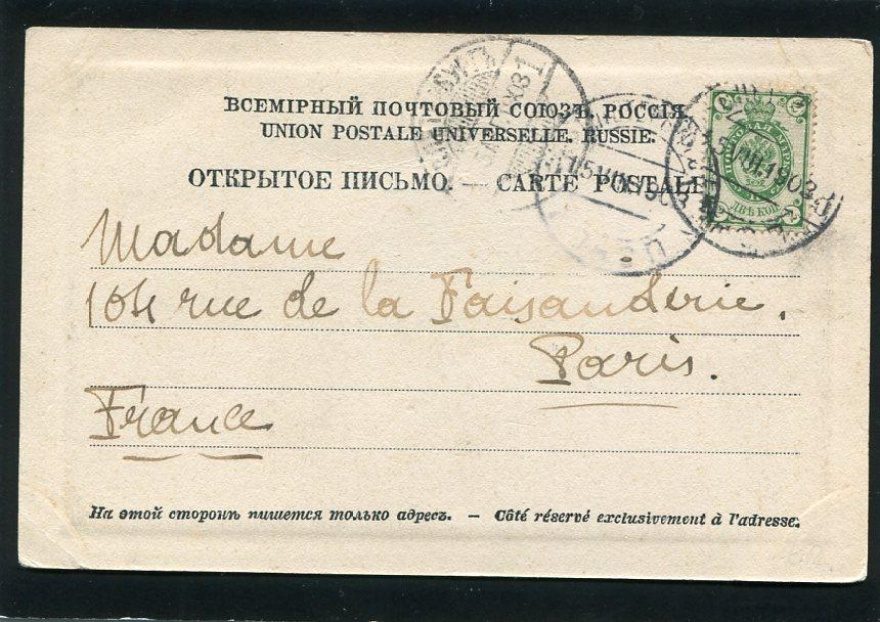 ВСЕМІРНЫЙ ПОЧТОВЫЙ СОЮЗЪ. РОССІЯ.
UNION POSTALE UNIVERSELLE. RUSSIE.
ОТКРЫТОЕ ПИСЬМО. — CARTE POSTALE
ДВѢ КОП
1903
Madame
104 rue de la Faisanderie.
Paris.
France
На этой сторонѣ пишется только адресъ. — Côté réservé exclusivement à l'adresse.